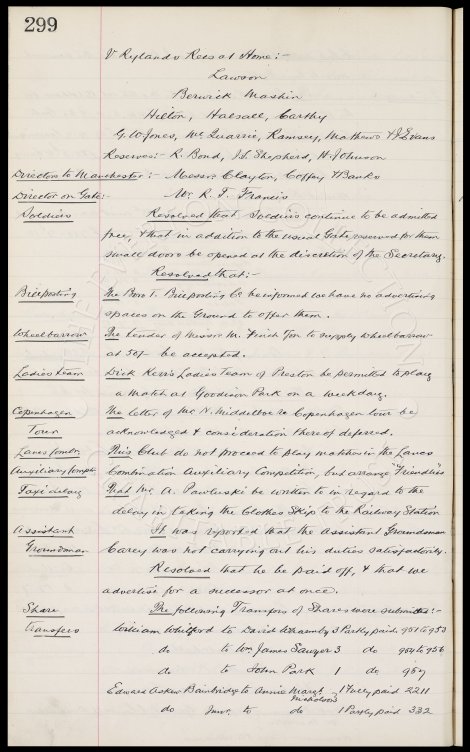 299
V Rylands Recs at Home :-
Lawson
Berwick Mashin
Hilton, Halsall, Carthy
G. W. Jones, McQuarrie, Ramsey, Mathews & J. Evans
Reserves:- R. Bond, J. S. Shepherd, H. Johnson
Directors to Manchester :- Messrs Clayton, Coffey & Banks
Director on Gate :- Mr. R. T. Francis
Soldiers Resolved that Soldiers continue to be admitted
free, & that in addition to the usual Gate reserved for them
small doors be opened at the discretion of the Secretary.
Resolved that :-
Billposting The Boro' T. Billposting Co be informed we have no advertising
spaces on the Ground to offer them.
Wheelbarrow The tender of Messrs M. Finch for to supply Wheelbarrow
at 50/- be accepted.
Ladies Team Dick Kerr's Ladies Team of Preston be permitted to play
a match at Goodison Park on a weekday.
Copenhagen The letter of Mr N. Middelboe re Copenhagen tour be
Tour acknowledged & consideration thereof deferred.
Lancs Combn This Club do not proceed to play matches in the Lancs
Auxiliary Compt Combination Auxiliary Competition, but arrange "Friendlies"
Taxi delay That Mr. A. Pawluski be written to in regard to the
delay in taking the Clothes Skips to the Railway Station
Assistant It was reported that the Assistant Groundsman
Groundsman Carey was not carrying out his duties satisfactorily.
Resolved that he be paid off, & that we
advertise for a successor at once.
Share The following Transfers of Shares were submitted :-
transfers William Whitford to David Wramby 3 Partly paid 951 to 953
do to Wm James Sawyer 3 do 954 to 956
do to John Park 1 do 957
Edward Askew Bainbridge to Annie Margt Nicholson 1 Fully paid 2211
do Junr. to do 1 Partly paid 332